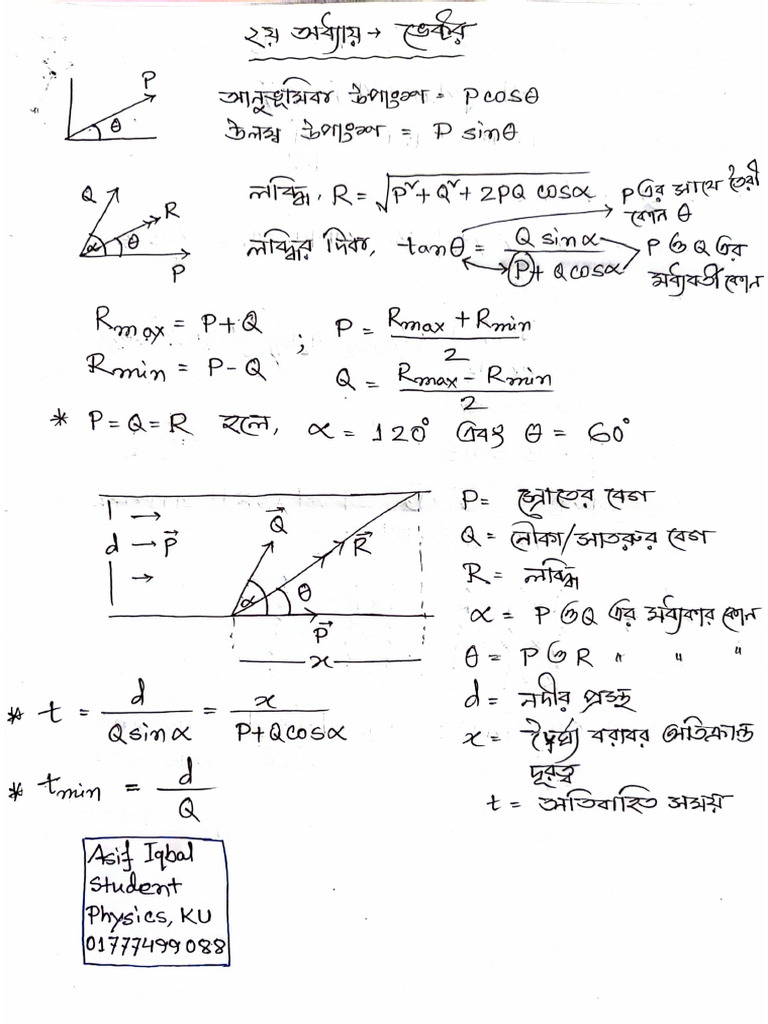 ২য় অধ্যায় → ভেক্টর
P
θ
আনুভূমিক উপাংশ = P cosθ
উলম্ব উপাংশ = P sinθ
Q
R
α θ
P
লব্ধি, R = √(P² + Q² + 2PQ cosα)
P এর সাথে তৈরী কোন θ
লব্ধির দিক, tanθ = Q sinα / (P + Q cosα)
P ও Q এর মধ্যবর্তী কোন
Rmax = P+Q ; P = (Rmax + Rmin) / 2
Rmin = P-Q Q = (Rmax - Rmin) / 2
* P = Q = R হলে, α = 120° এবং θ = 60°
d → P⃗
Q⃗
R⃗
α θ
P⃗
x
P = স্রোতের বেগ
Q = নৌকা/সাতারুর বেগ
R = লব্ধি
α = P ও Q এর মধ্যকার কোন
θ = P ও R " " "
d = নদীর প্রস্থ
x = দৈর্ঘ্য বরাবর অতিক্রান্ত
দূরত্ব
t = অতিবাহিত সময়
* t = d / (Q sinα) = x / (P+Q cosα)
* tmin = d / Q
Asif Iqbal
Student
Physics, KU
01777499088